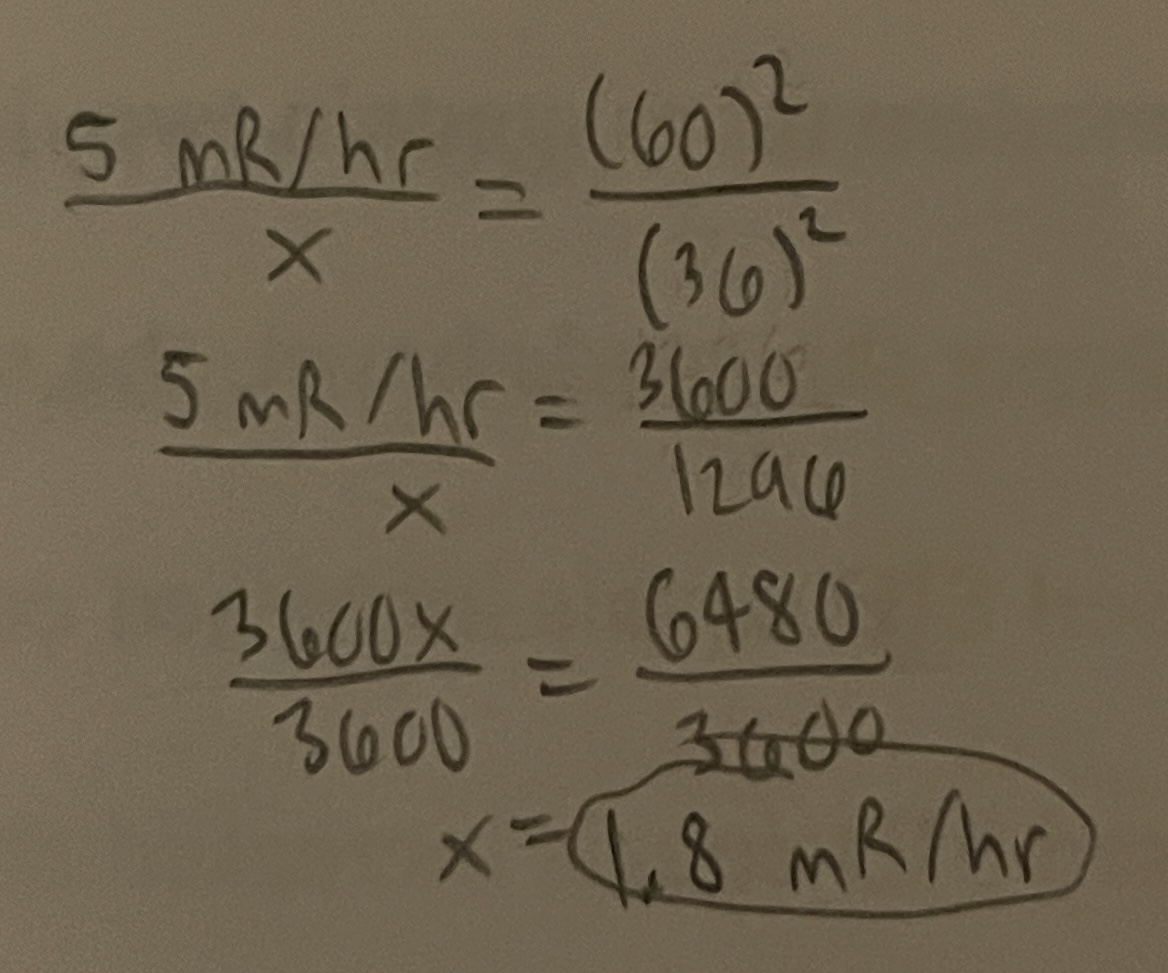 5 mR/hr / x = (60)² / (36)²
5 mR/hr / x = 3600 / 1296
3600x / 3600 = 6480 / 3600
x = 1.8 mR/hr